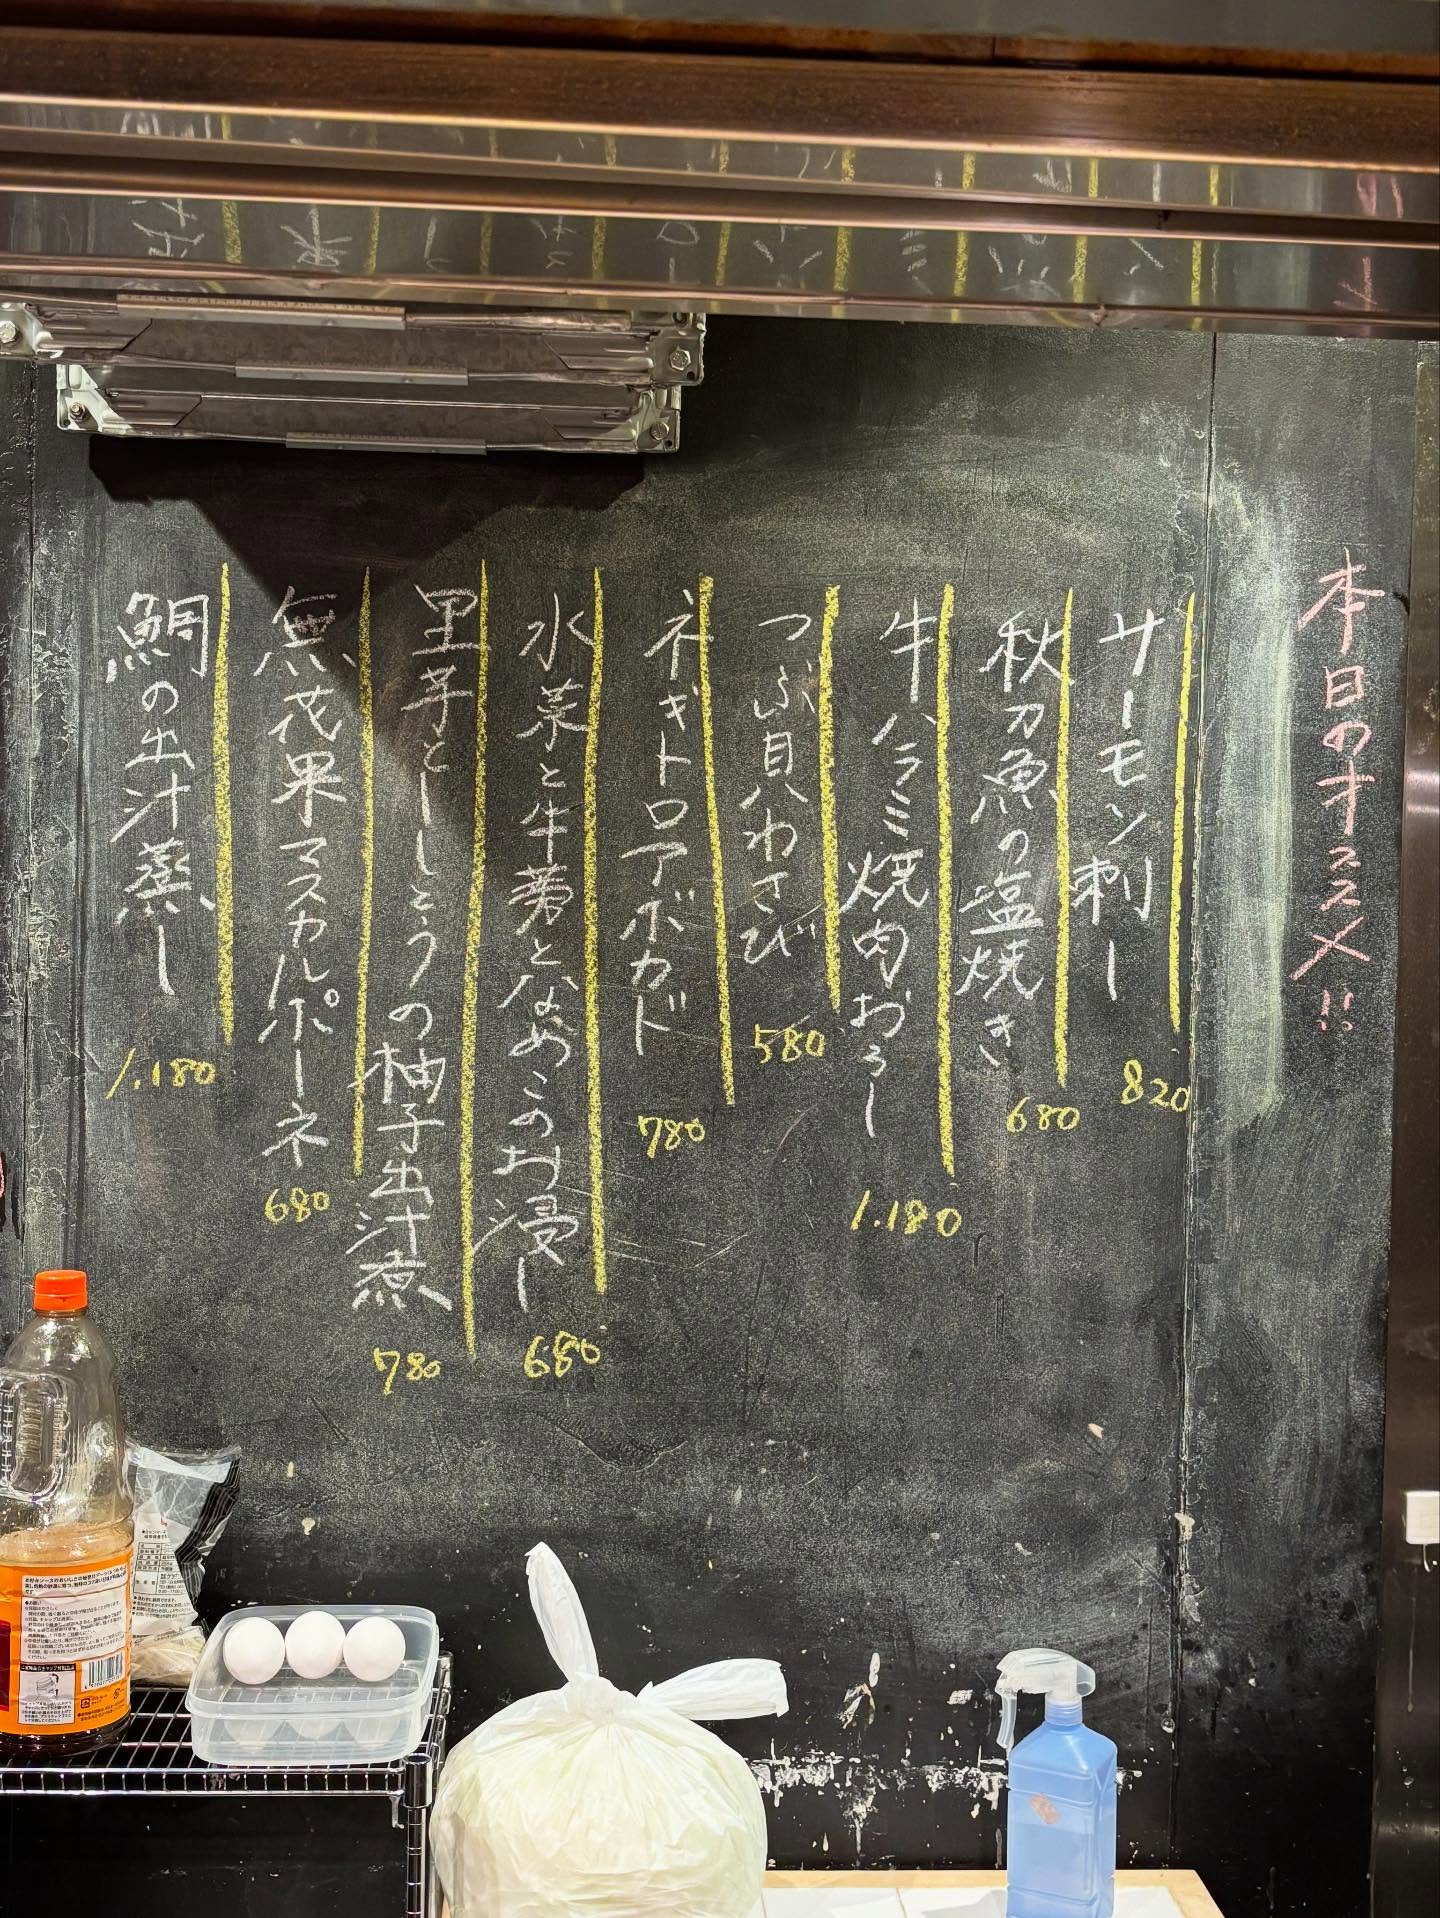 本日のオススメ!!
サーモン刺し
820
秋刀魚の塩焼き
680
牛ハラミ焼肉おろし
1.180
つぶ貝わさび
580
ネギトロアボカド
780
水菜と牛蒡となめこのお浸し
680
里芋としとうの柚子出汁煮
780
無花果マスカルポーネ
680
鯛の出汁蒸し
1.180